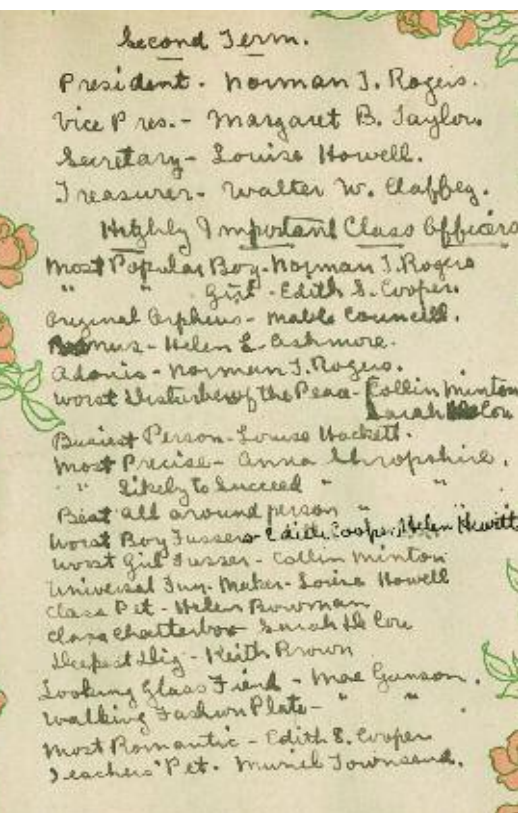 Second Term.
President - Norman T. Rogers.
Vice Pres. - Margaret B. Taylor.
Secretary - Louise Howell.
Treasurer - Walter W. Claffey.
Highly Important Class Officers
Most Popular Boy - Norman T. Rogers
" " Girl - Edith S. Cooper.
Original Orpheus - Mable Councill.
Helen L. Ashmore.
Adonis - Norman T. Rogers.
Worst Disturber of the Peace - Collin Minton
Sarah De Cou
Busiest Person - Louise Hackett.
Most Precise - Anna Shropshire.
" Likely to Succeed " "
Best all around person " "
Worst Boy Fussers - Edith Cooper, Helen Hewitt
Worst Girl Fusser - Collin Minton
Universal Fun-Maker - Louise Howell
Class Pet - Helen Bowman
Class Chatterbox Sarah De Cou
Deepest Dig - Keith Brown
Looking Glass Fiend - Mae Ganson.
Walking Fashion Plate - " " .
Most Romantic - Edith S. Cooper
Teachers' Pet - Muriel Townsend.